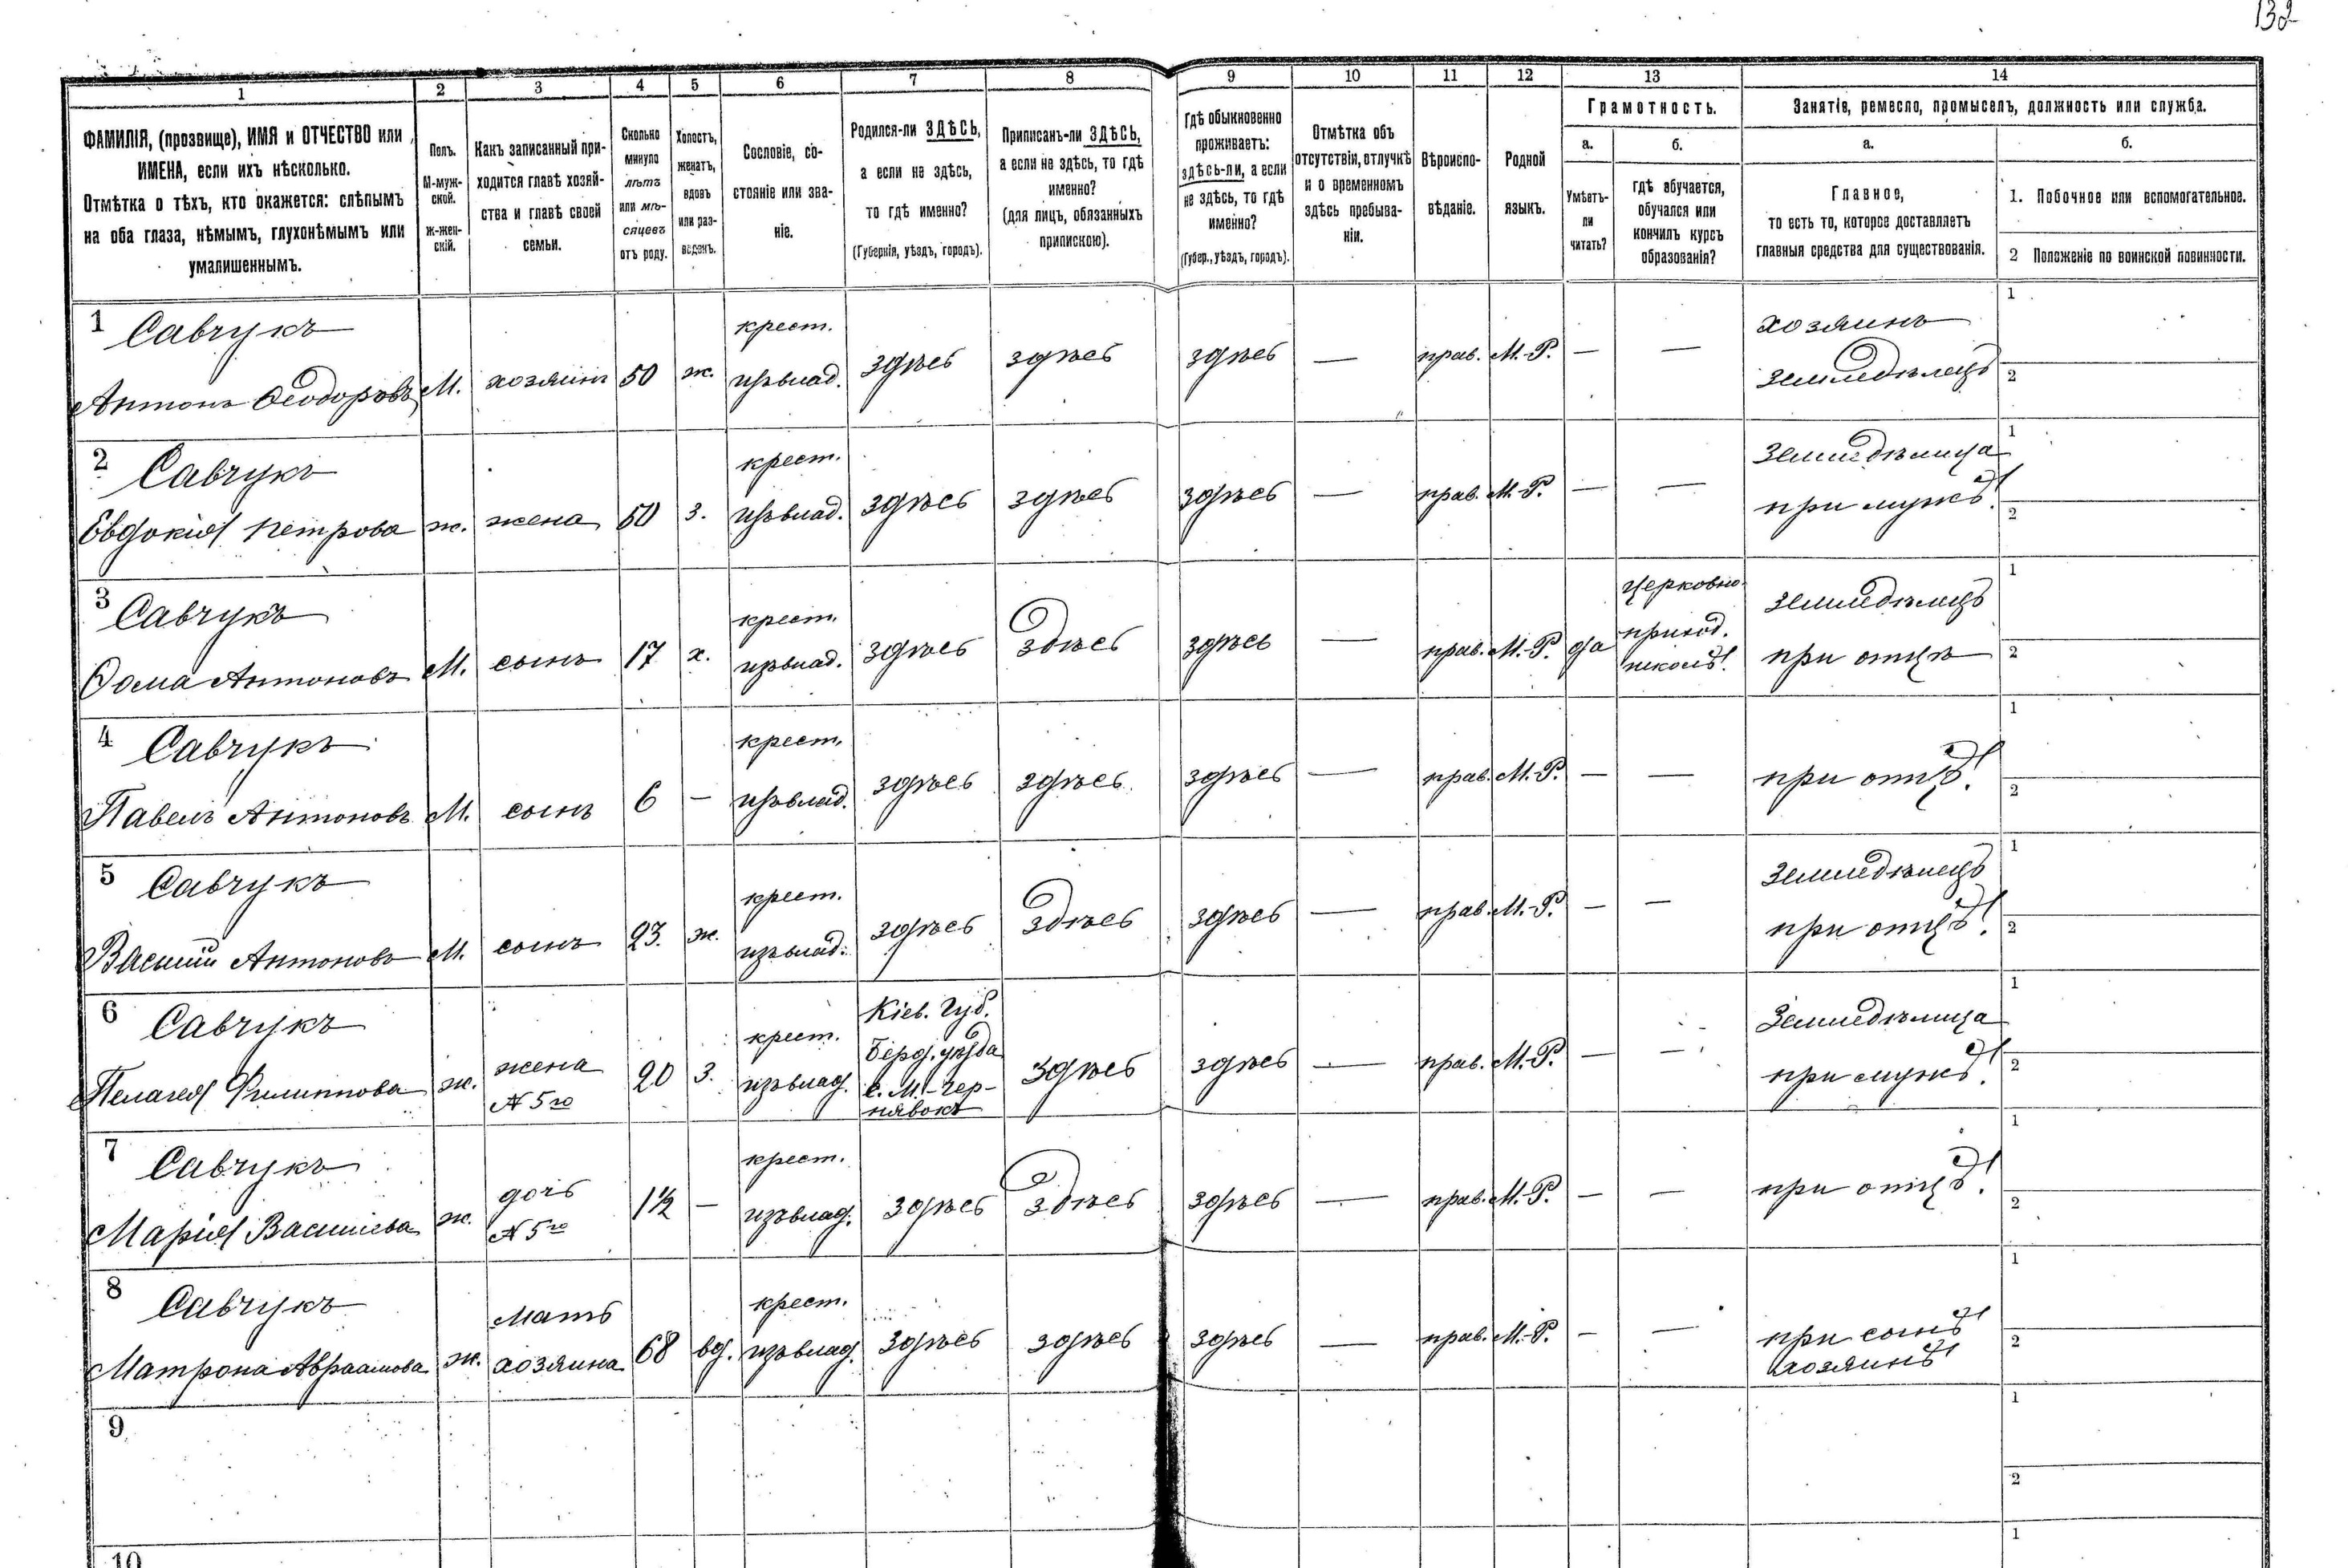 132
1 2 3 4 5 6 7 8 9 10 11 12 13 14
ФАМИЛІЯ, (прозвище), ИМЯ и ОТЧЕСТВО или
ИМЕНА, если ихъ нѣсколько.
Отмѣтка о тѣхъ, кто окажется: слѣпымъ
на оба глаза, нѣмымъ, глухонѣмымъ или
умалишеннымъ.
Полъ.
М-муж-
ской.
ж-жен-
скій.
Какъ записанный при-
ходится главѣ хозяй-
ства и главѣ своей
семьи.
Сколько
минуло
лѣтъ
или мѣ-
сяцевъ
отъ роду.
Холостъ,
женатъ,
вдовъ
или раз-
веденъ.
Сословіе, со-
стояніе или зва-
ніе.
Родился-ли ЗДѢСЬ,
а если не здѣсь,
то гдѣ именно?
(Губернія, уѣздъ, городъ).
Приписанъ-ли ЗДѢСЬ,
а если не здѣсь, то гдѣ
именно?
(для лицъ, обязанныхъ
припискою).
Гдѣ обыкновенно
проживаетъ:
здѣсь-ли, а если
не здѣсь, то гдѣ
именно?
(Губер., уѣздъ, городъ).
Отмѣтка объ
отсутствіи, отлучкѣ
и о временномъ
здѣсь пребыва-
ніи.
Вѣроиспо-
вѣданіе.
Родной
языкъ.
Грамотность.
а.
Умѣетъ-
ли
читать?
б.
гдѣ обучается,
обучался или
кончилъ курсъ
образованія?
Занятіе, ремесло, промыселъ, должность или служба.
а.
Главное,
то есть то, которое доставляетъ
главныя средства для существованія.
б.
1. Побочное или вспомогательное.
2 Положеніе по воинской повинности.
1 Савчукъ
Антонъ Ѳеодоровъ М. хозяинъ 50 ж. крест. изъ влад. здѣсь здѣсь здѣсь — прав. М.-Р. — — хозяинъ
земледѣлецъ
1
2
2 Савчукъ
Евдокія Петрова ж. жена 50 з. крест. изъ влад. здѣсь здѣсь здѣсь — прав. М.-Р. — — земледѣлица
при мужѣ.
1
2
3 Савчукъ
Ѳома Антоновъ М. сынъ 17 х. крест. изъ влад. здѣсь здѣсь здѣсь — прав. М.-Р. да церковно-
приход.
школѣ.
земледѣлецъ
при отцѣ
1
2
4 Савчукъ
Павелъ Антоновъ М. сынъ 6 — крест. изъ влад. здѣсь здѣсь здѣсь — прав. М.-Р. — — при отцѣ.
1
2
5 Савчукъ
Василій Антоновъ М. сынъ 23. ж. крест. изъ влад. здѣсь здѣсь здѣсь — прав. М.-Р. — — земледѣлецъ
при отцѣ.
1
2
6 Савчукъ
Пелагея Филиппова ж. жена
№ 5го
20 з. крест. изъ влад. Кіев. Губ.
Берд. уѣзда
с. М.-Чер-
нявокъ
здѣсь здѣсь — прав. М.-Р. — — Земледѣлица
при мужѣ.
1
2
7 Савчукъ
Марія Васильева ж. дочь
№ 5го
1½ — крест. изъ влад. здѣсь здѣсь здѣсь — прав. М.-Р. — — при отцѣ.
1
2
8 Савчукъ
Матрона Авраамова ж. мать
хозяина
68 вд. крест. изъ влад. здѣсь здѣсь здѣсь — прав. М.-Р. — — при сынѣ
хозяинѣ
1
2
9
1
2
10
1